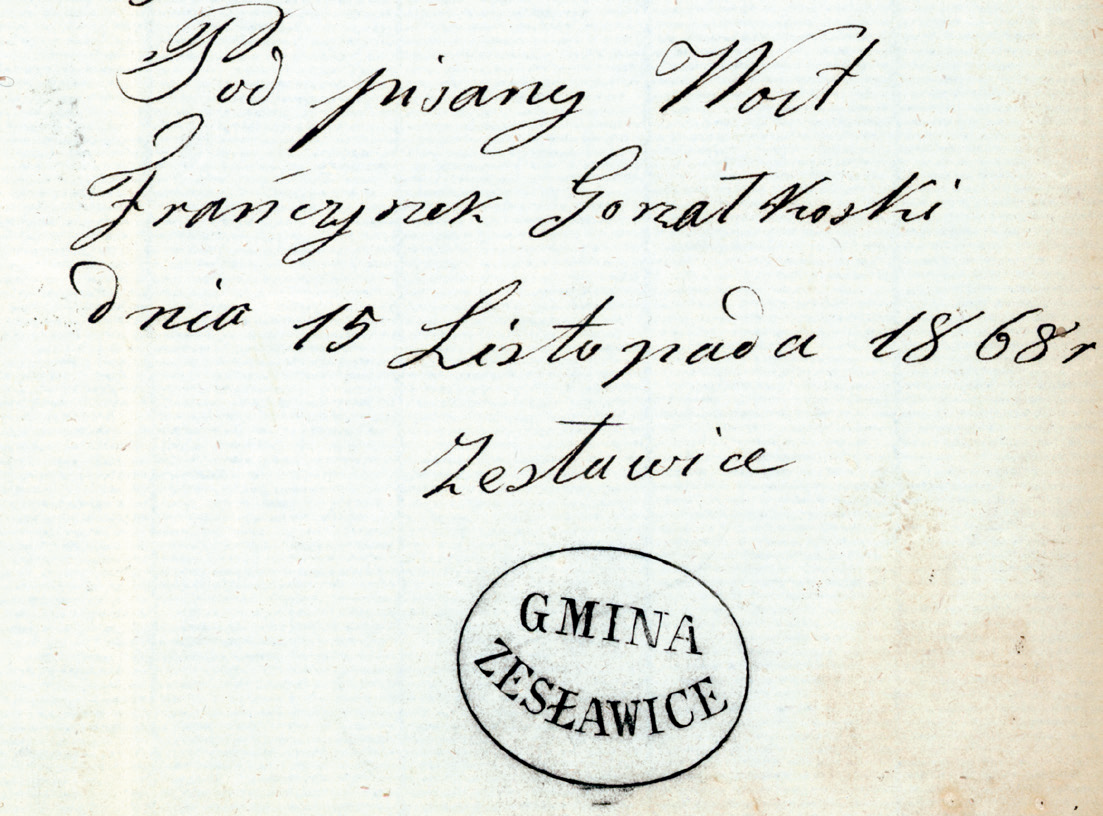 Pod pisany Woit
Frańczyszek Gorzałkoski
dnia 15 Listopada 1868 r
Zesławice
GMINA
ZESŁAWICE